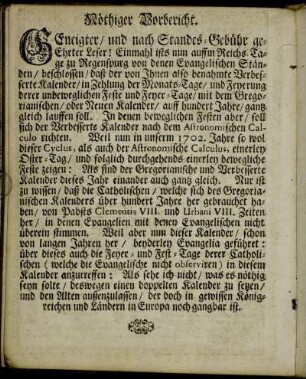 Nöthiger Vorbericht.
GEneigter/ und nach Standes-Gebühr ge-
Ehrter Leser! Einmahl ists nun auffm Reichs-Ta-
ge zu Regenspurg von denen Evangelischen Stän-
den/ beschlossen/ daß der von Ihnen also benahmte Verbes-
serte Kalender/ in Zehlung der Monats-Tage/ und Feyerung
derer unbeweglichen Feste und Feyer-Tage/ mit dem Grego-
rianischen/ oder Neuen Kalender/ auff hundert Jahre/ gantz
gleich lauffen soll. In denen beweglichen Festen aber/ soll
sich der Verbesserte Kalender nach dem Astronomischen Cal-
culo richten. Weil nun in unserm 1702. Jahre so wol
dieser Cyclus, als auch der Astronomische Calculus, einerley
Oster-Tag/ und folglich durchgehends einerley bewegliche
Feste zeigen: Als sind der Gregorianische und Verbesserte
Kalender dieses Jahr einander auch gantz gleich. Nur ist
zu wissen/ daß die Catholischen/ welche sich des Gregoria-
nischen Kalenders über hundert Jahre her gebrauchet ha-
ben/ von Pabsts Clementis VIII. und Urbani VIII. Zeiten
her/ in denen Evangelien mit denen Evangelischen nicht
überein stimmen. Weil aber nun dieser Kalender/ schon
von langen Jahren her/ beyderley Evangelia geführet:
über dieses auch die Feyer- und Fest-Tage derer Catholi-
schen (welche die Evangelische nicht observiren) in diesem
Kalender anzutreffen: Als sehe ich nicht/ was es nöthig
seyn solte/ deswegen einen doppelten Kalender zu setzen/
und den Alten außenzulassen/ der doch in gewissen König-
reichen und Ländern in Europa noch gangbar ist.